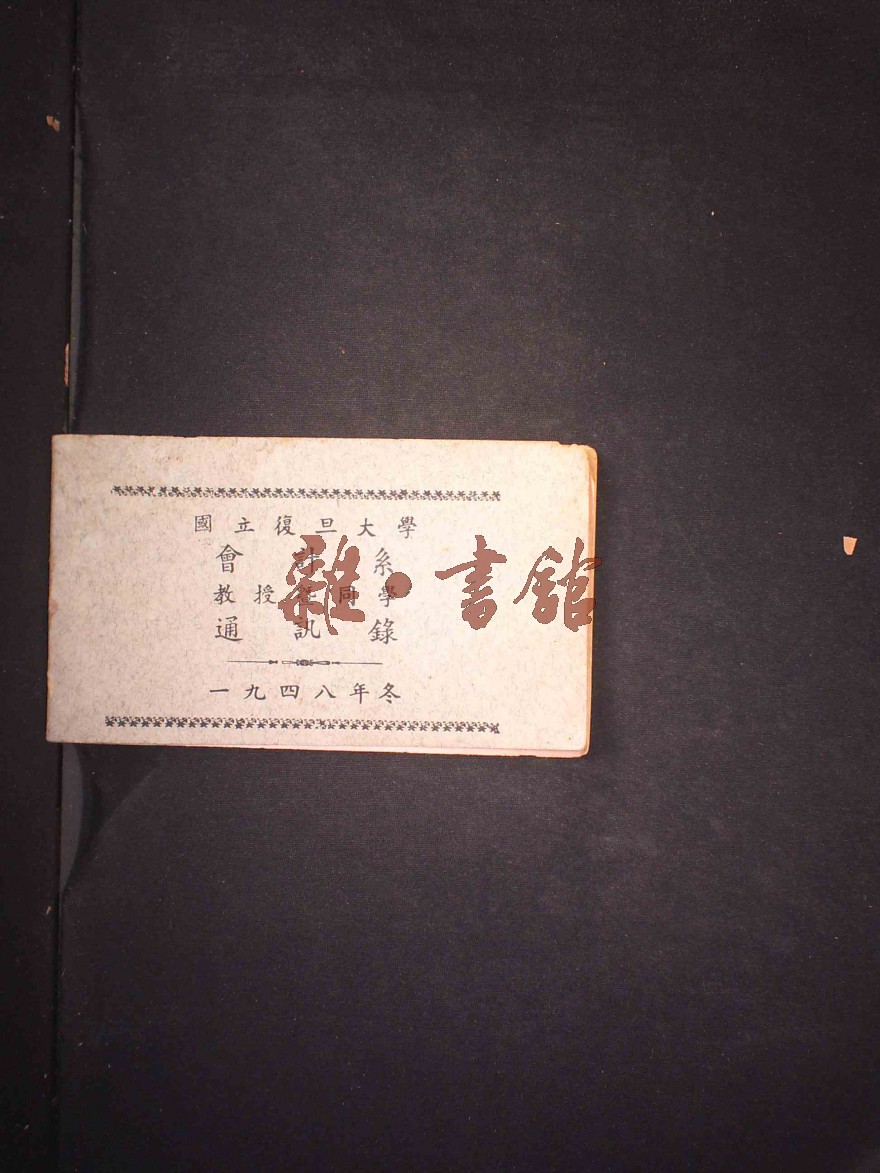 國立復旦大學
會計系
教授暨同學
通訊錄
一九四八年冬
雜·書館